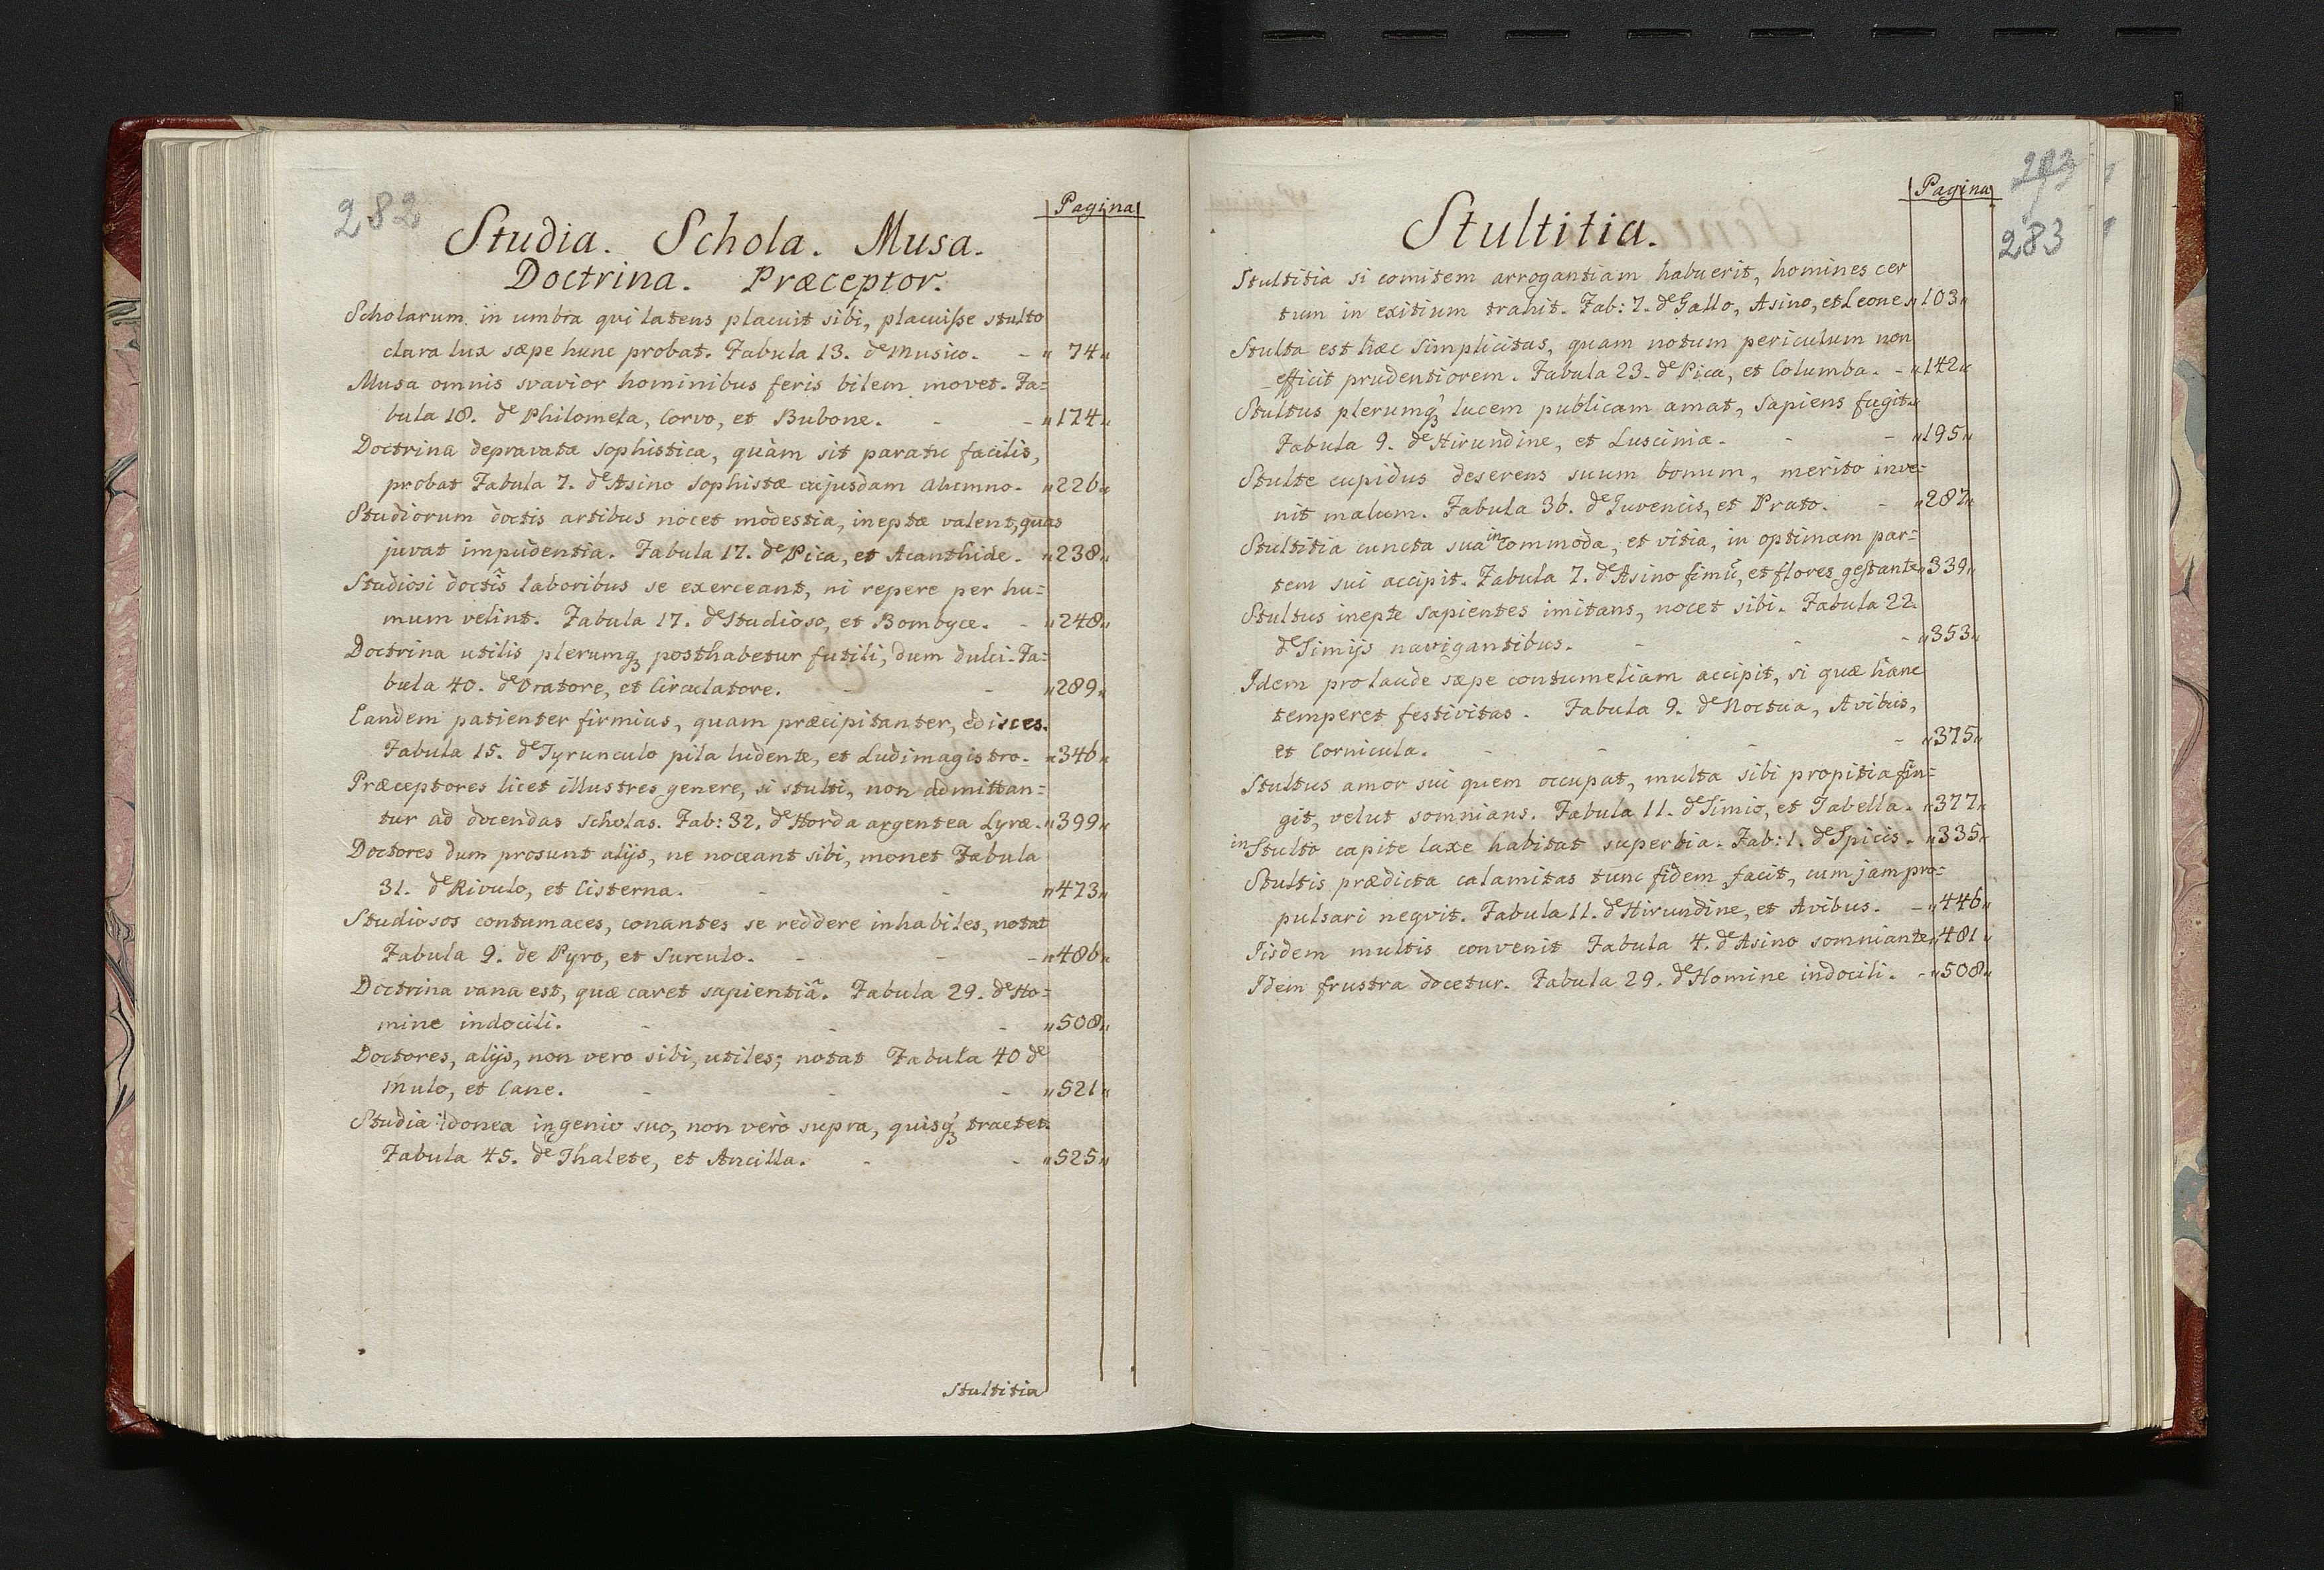 282
Pagina
Studia. Schola. Musa.
Doctrina. Præceptor.
Scholarum in umbra qvi latens placuit sibi, placuiſse stulto
clara lux sæpe hunc probat. Fabula 13. de Musico. - „ 74 „
Musa omnis svavior hominibus feris bilem movet. Fa=
bula 18. de Philomela, Corvo, et Bubone. - - „174„
Doctrina depravata sophistica, quàm sit paratu facilis,
probat Fabula 7. de Asino Sophistæ cujusdam alumno. „226„
Studiorum doctis artibus nocet modestia, ineptæ valent, quas
juvat impudentia. Fabula 17. de Pica, et Acanthide. „238„
Studiosi doctis laboribus se exerceant, ni repere per hu=
mum velint. Fabula 17. de Studioso, et Bombyce. - „248„
Doctrina utilis plerumq; posthabetur futili, dum dulci. Fa=
bula 40. de Oratore, et Circulatore. - - „289„
Eandem patienter firmius, quam præcipitanter, edisces.
Fabula 15. de Tyrunculo pila ludente, et Ludimagistro. „346„
Præceptores licet illustres genere, si stulti, non admittan=
tur ad docendas Scholas. Fab: 32. de Horda argentea Lyræ. „399„
Doctores dum prosunt alijs, ne noceant sibi, monet Fabula
31. de Rivulo, et Cisterna. - - „473„
Studiosos contumaces, conantes se reddere inhabiles, notat
Fabula 9. de Pyro, et Surculo. - - - „486„
Doctrina vana est, quæ caret sapientiâ. Fabula 29. de Ho=
mine indocili. - - - „508„
Doctores, alijs, non vero sibi, utiles; notat Fabula 40 de
Mulo, et Cane. - - - „521„
Studia idonea ingenio suo, non verò supra, quisq; tractet.
Fabula 45. de Thalete, et Ancilla. - - „525„
Stultitia
293
283
Pagina
Stultitia.
Stultitia si comitem arrogantiam habuerit, homines cer
tum in exitium trahit. Fab: 7. de Gallo, Asino, et Leone. „103„
Stulta est hæc simplicitas, quam notum periculum non
efficit prudentiorem. Fabula 23. de Pica, et Columba. - „142„
Stultus plerumq; lucem publicam amat, Sapiens fugit.
Fabula 9. de Hirundine, et Luscinia. - - „195„
Stulte cupidus deserens suum bonum, merito inve=
nit malum. Fabula 36. de Juvencis, et Prato. - „287„
Stultitia cuncta sua incommoda, et vitia, in optimam par=
tem sui accipit. Fabula 7. de Asino fimũ, et flores geſtante „339„
Stultus inepte sapientes imitans, nocet sibi. Fabula 22.
de Simijs navigantibus. - - - „353„
Idem pro laude sæpe contumeliam accipit, si quæ hanc
temperet festivitas. Fabula 9. de Noctua, Avibus,
et Cornicula. - - - - „375„
Stultus amor sui quem occupat, multa sibi propitia fin=
git, velut somnians. Fabula 11. de Simio, et Tabella. „377„
in Stulto capite laxe habitat superbia. Fab: 1. de Spicis. - „335„
Stultis prædicta calamitas tunc fidem facit, cum jam pro=
pulsari neqvit. Fabula 11. de Hirundine, et Avibus. - „446„
Iisdem multis convenit Fabula 4. de Asino somniante. „481„
Idem frustra docetur. Fabula 29. de Homine indocili. - „508„